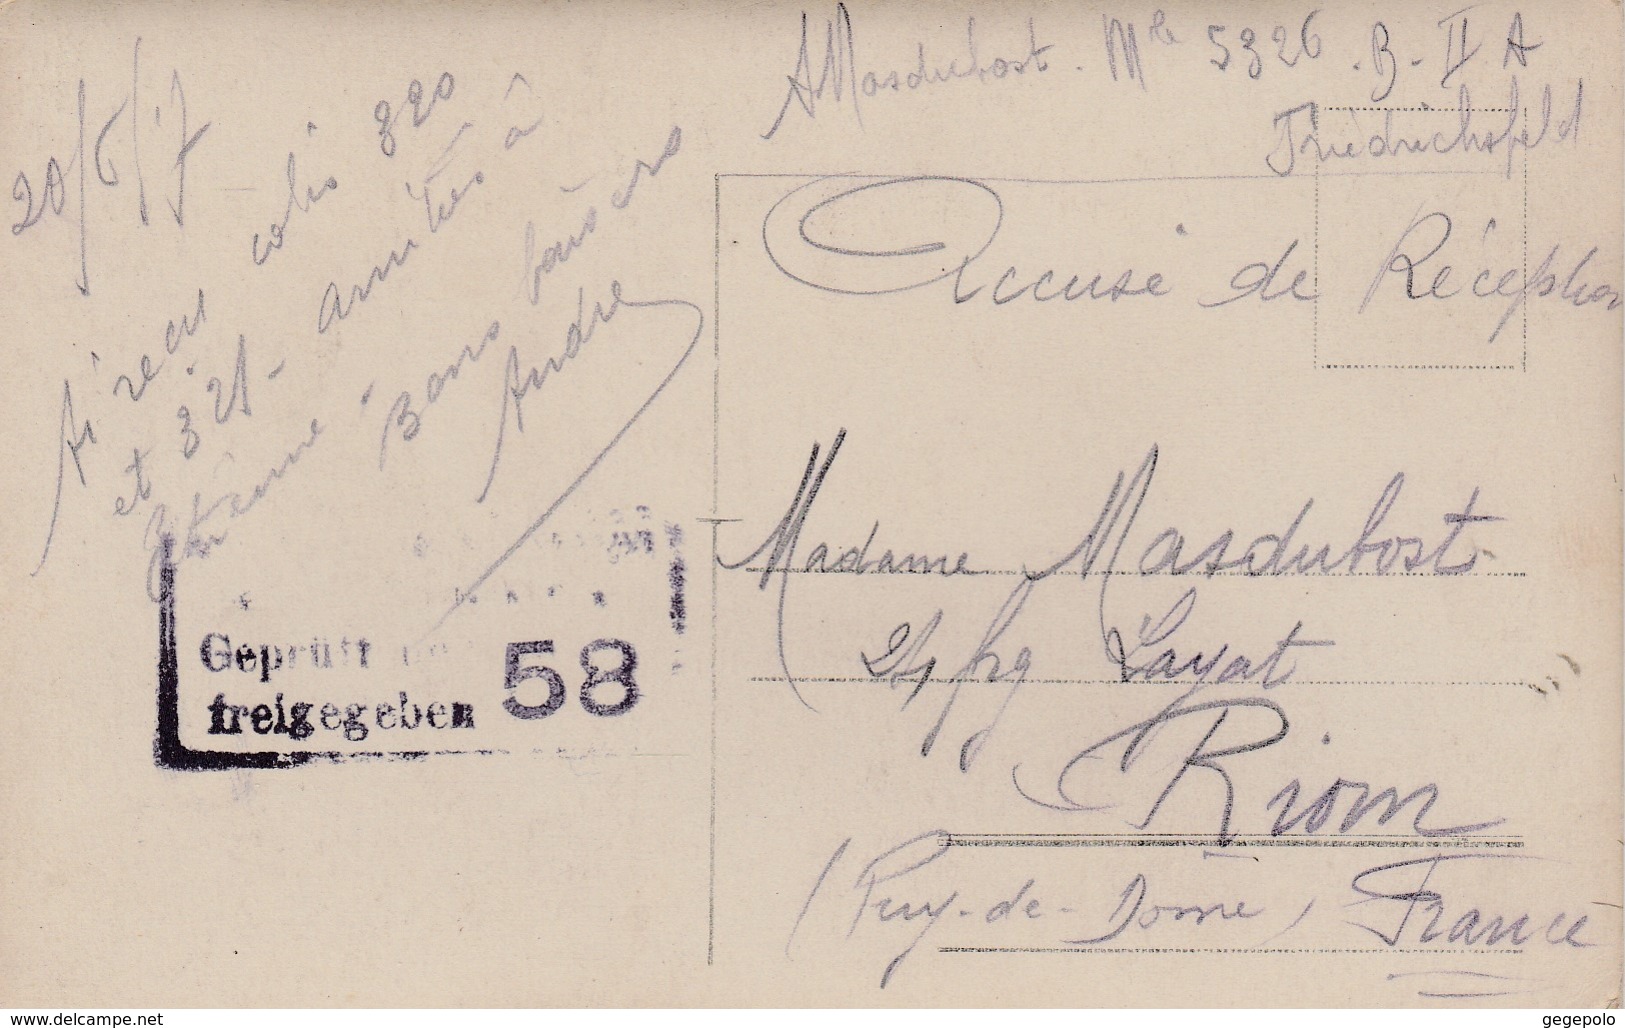 20/6/17
Ai reçu colis 320
et 321 - amitiés à
Etienne. Bons baisers
André
Geprüft
freigegeben 58
A Masdubost. Mle 5326. B. II A
Friedrichsfeld
Accusé de Réception
Madame Masdubost
24 fbg Layat
Riom
(Puy-de-Dôme) France
www.delcampe.net
gegepolo